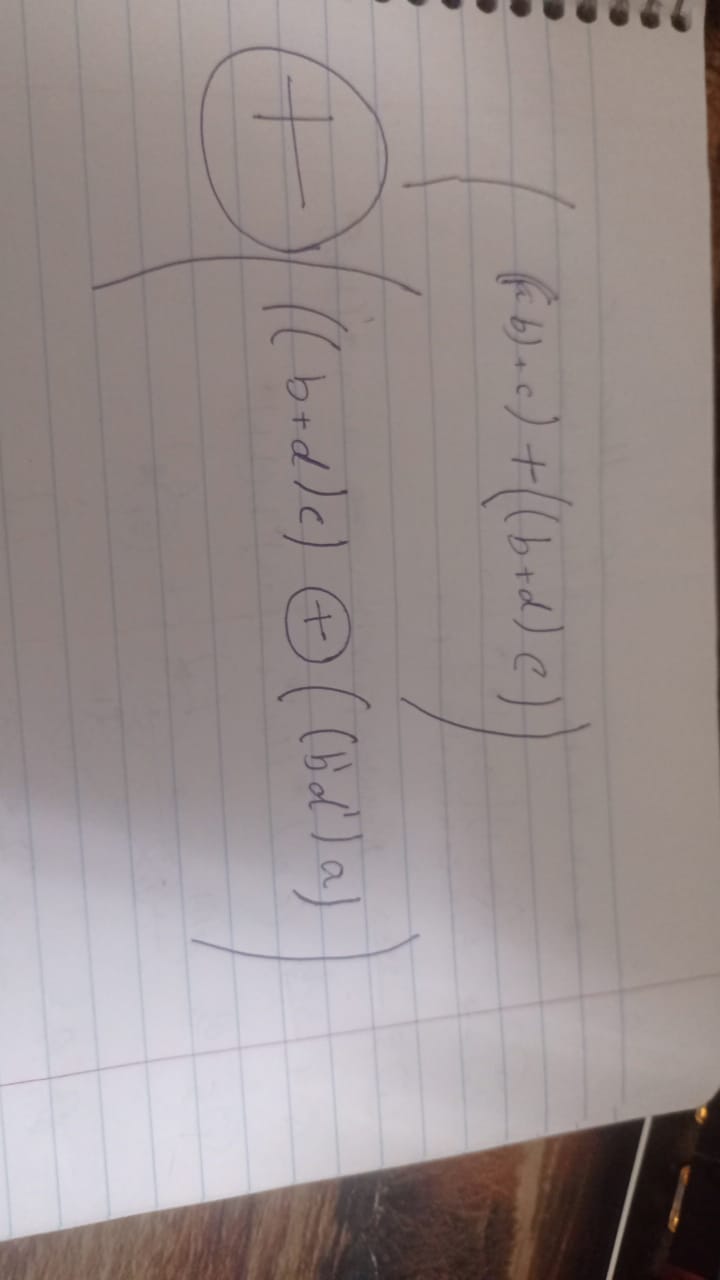 ( (ab)+c) + ((b+d) c) )
⊕ ( ((b+d)c) ⊕ ((b'd')a) )